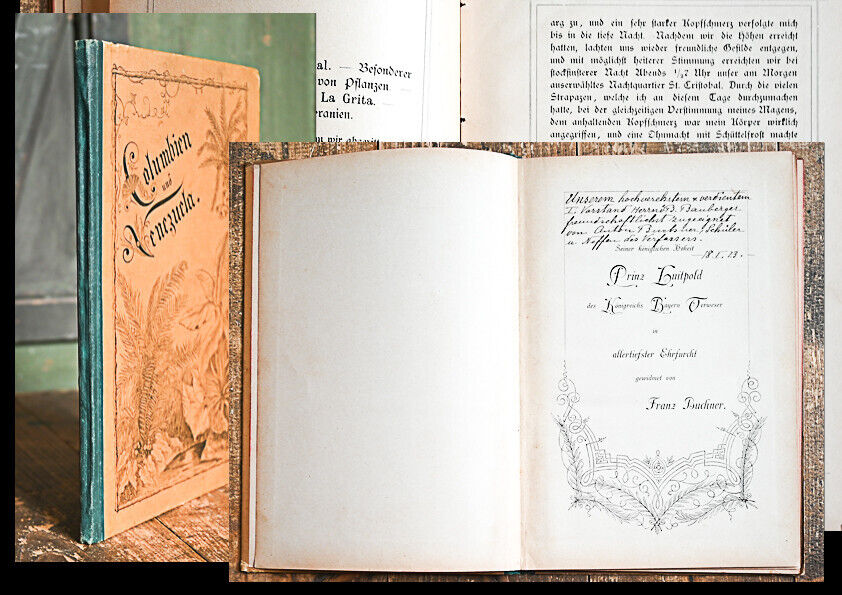 Columbien
und
Venezuela.
al. — Besonderer
von Pflanzen
La Grita. —
ranien.
arg zu, und ein sehr starker Kopfschmerz verfolgte mich
bis in die tiefe Nacht. Nachdem wir die Höhen erreicht
hatten, lachten uns wieder freundliche Gefilde entgegen,
und mit möglichst heiterer Stimmung erreichten wir bei
stockfinsterer Nacht Abends ½7 Uhr unser am Morgen
auserwähltes Nachtquartier St. Cristobal. Durch die vielen
Strapazen, welche ich an diesem Tage durchzumachen
hatte, bei der gleichzeitigen Verstimmung meines Magens,
dem anhaltenden Kopfschmerz war mein Körper wirklich
angegriffen, und eine Ohnmacht mit Schüttelfrost machte
Unserem hochverehrten & verdienten
I. Vorstand Herrn
freundschaftlichst zugeeignet
von Anton Buchner, Schüler
u. Neffen des Verfassers.
18.1.13.—
Seiner königlichen Hoheit
Prinz Luitpold
des Königreichs Bayern Verweser
in
allertiefster Ehrfurcht
gewidmet von
Franz Buchner.